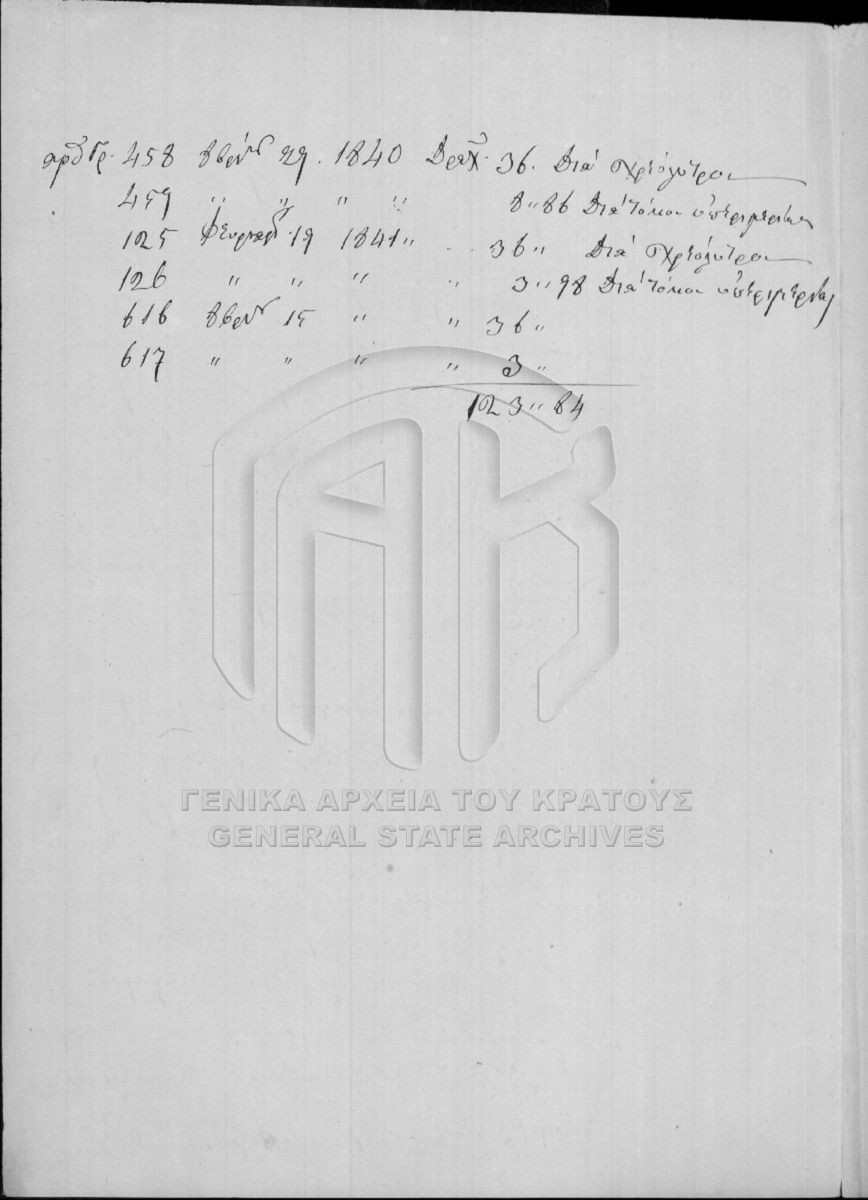 αρθ Γρ. 458 8βρίου 29. 1840 Δραχ. 36. Διά χρεόλυτρον
459 " " " " 8 " 86 Διά τόκον υπερημερίας
125 Φευρουαρ. 19 1841 " 36 " Διά χρεόλυτρον
126 " " " " 3 " 98 Διά τόκον υπερημερίας
616 8βρίου 15 " " 36 "
617 " " " " 3 "
123 " 84
ΓΕΝΙΚΑ ΑΡΧΕΙΑ ΤΟΥ ΚΡΑΤΟΥΣ
GENERAL STATE ARCHIVES